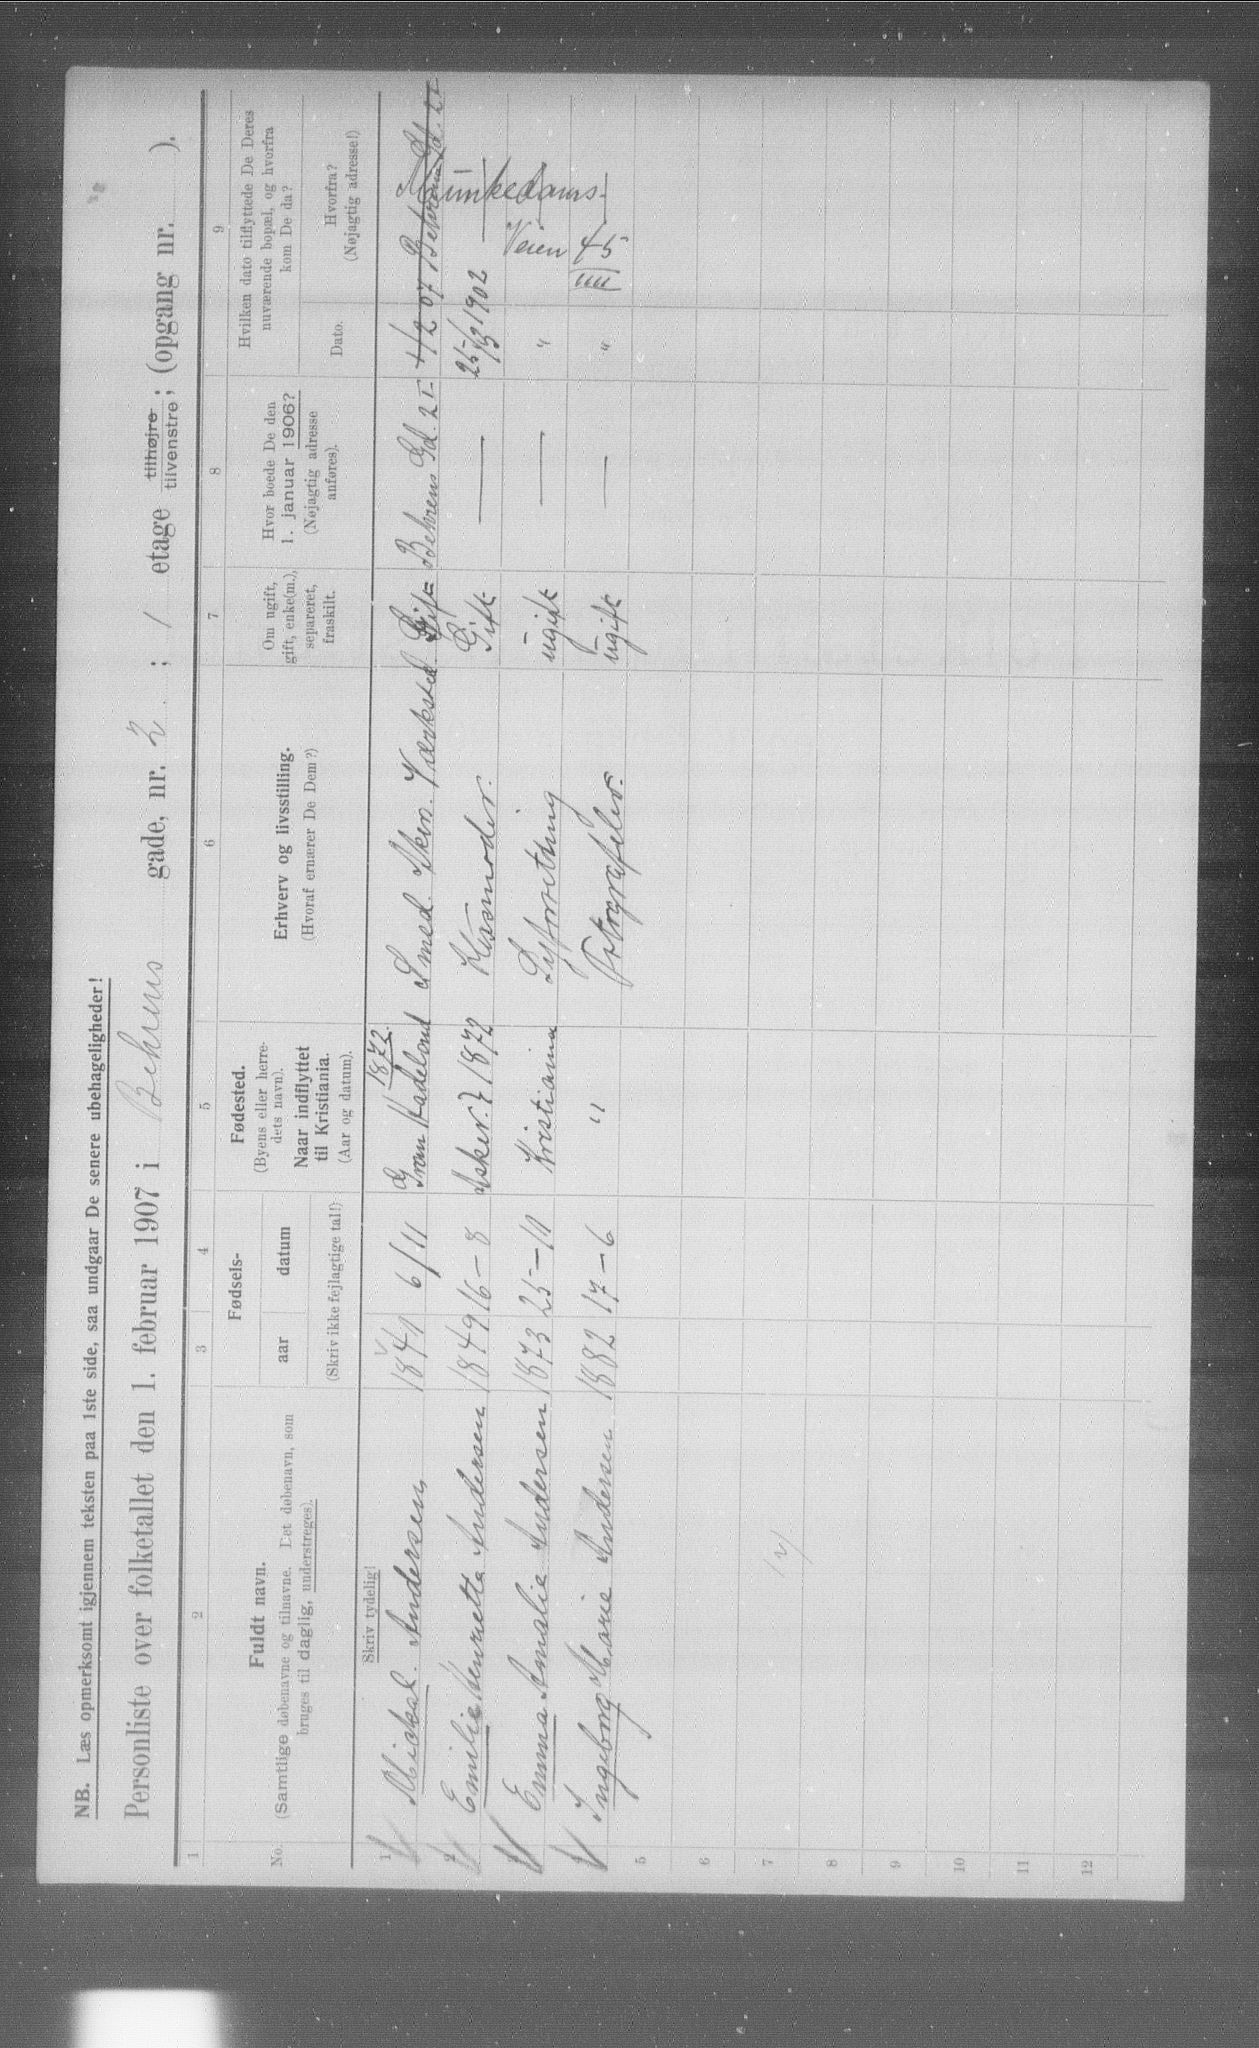 NB. Læs opmerksomt igjennem teksten paa 1ste side, saa undgaar De senere ubehageligheder!
Personliste over folketallet den 1. februar 1907 i Behrens gade, nr. 2 ; 1 etage tilhøjre tilvenstre ; (opgang nr. ).
1 2 3 4 5 6 7 8 9
No.
Fuldt navn.
(Samtlige døbenavne og tilnavne. Det døbenavn, som
bruges til daglig, understreges).
Fødsels-
aar datum
(Skriv ikke fejlagtige tal!)
Fødested.
(Byens eller herre-
dets navn).
Naar indflyttet
til Kristiania.
(Aar og datum).
Erhverv og livsstilling.
(Hvoraf ernærer De Dem?)
Om ugift,
gift, enke(m.),
separeret,
fraskilt.
Hvor boede De den
1. januar 1906?
(Nøjagtig adresse
anføres).
Hvilken dato tilflyttede De Deres
nuværende bopæl, og hvorfra
kom De da?
Dato.
Hvorfra?
(Nøjagtig adresse!)
Skriv tydelig!
1872.
1 Mickal. Andersen 1841 6/11 Gran Hadeland Smed. Aker. Værksted. Gift Behrens Gd. 2 I 1/2 07 Behrens Gd. 2 I
2 Emilie Henriette Andersen 1849 16-8 Asker. 1872 Husmoder. Gift — 25/3 1902 Munkedams-
3 Emma Amalie Andersen 1873 25-11 Kristiania Syforretning ugift — " Veien 45
4 Ingeborg Marie Andersen 1882 17-6 " Fotografilev. ugift — " IIII
5
6
7
8
9
10
11
12